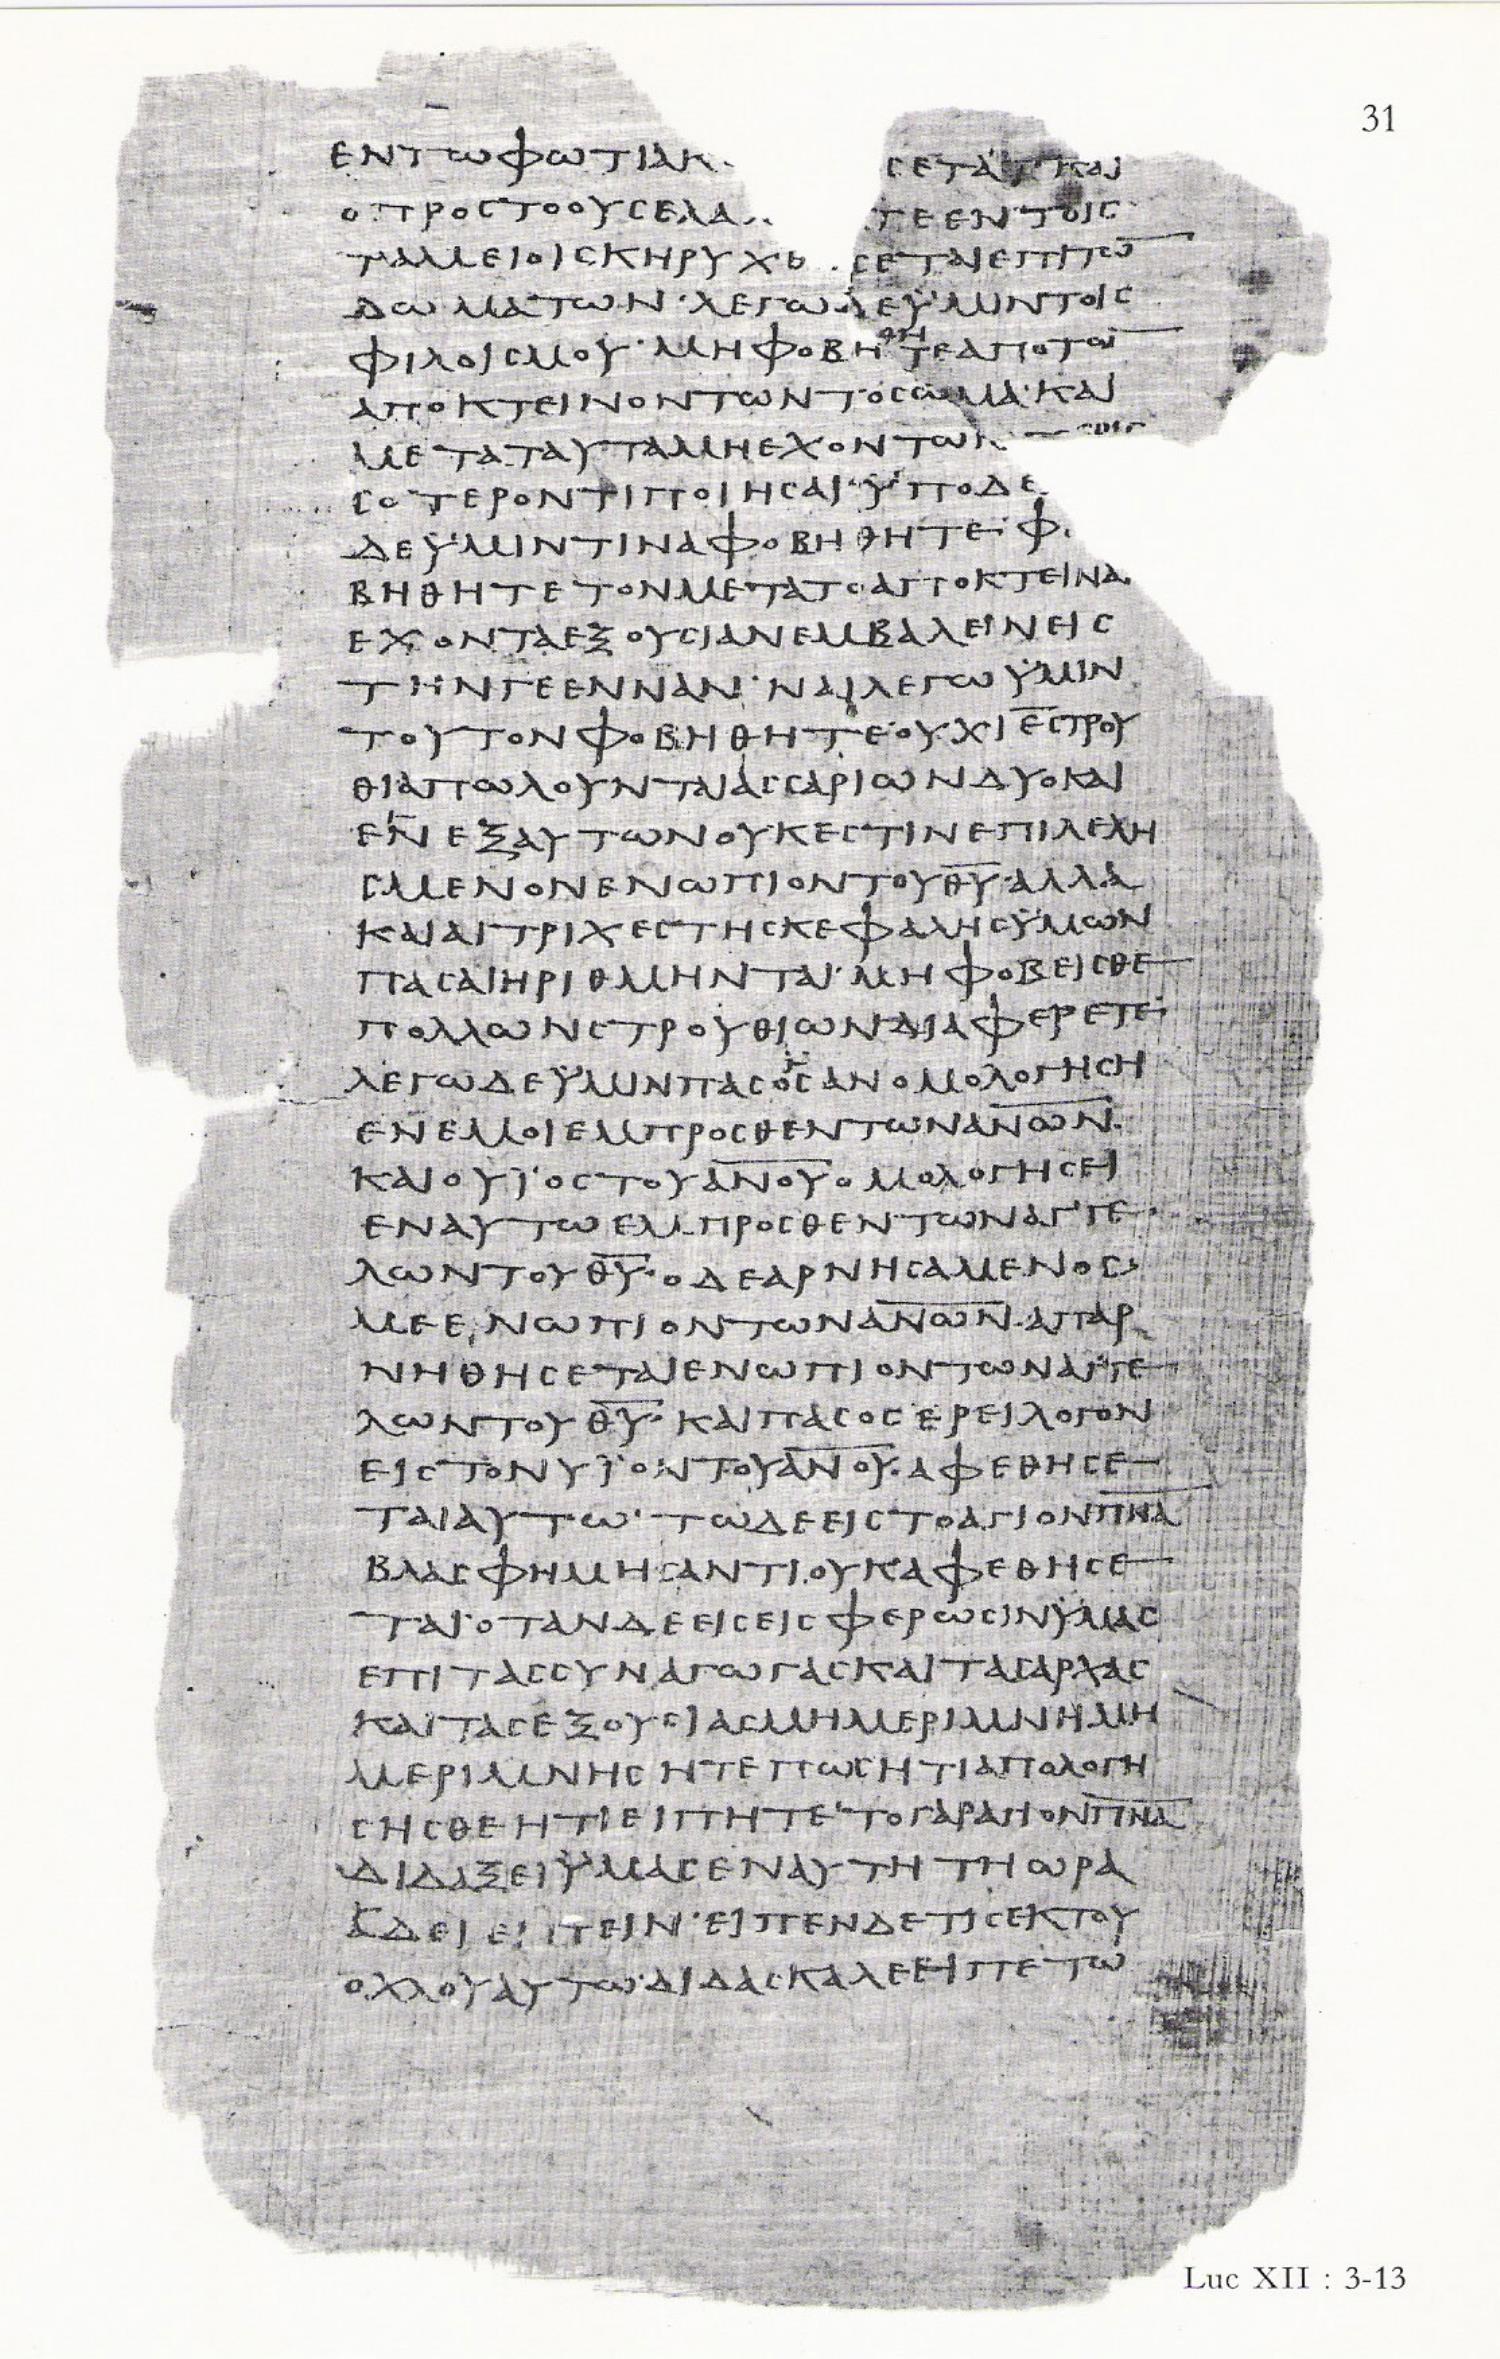 31
ΕΝΤΩΦΩΤΙΑΚ ΣΕΤΑΙ ΚΑΙ
Ο ΠΡΟΣΤΟΟΥΣΕΛΑ ΤΕΕΝΤΟΙΣ
ΤΑΜΕΙΟΙΣΚΗΡΥΧΘ ΣΕΤΑΙΕΠΙΤΩ̅
ΔΩΜΑΤΩΝ·ΛΕΓΩΔΕΫΜΙΝΤΟΙΣ
ΦΙΛΟΙΣΜΟΥ·ΜΗΦΟΒΗ`ΘΗ´ΤΕΑΠΟΤΩ̅
ΑΠΟΚΤΕΙΝΟΝΤΩΝΤΟΣΩΜΑ·ΚΑΙ
ΜΕΤΑΤΑΥΤΑΜΗΕΧΟΝΤΩΝ
ΣΟΤΕΡΟΝΤΙΠΟΙΗΣΑΙ·ΫΠΟΔΕ
ΔΕΫΜΙΝΤΙΝΑΦΟΒΗΘΗΤΕ·Φ
ΒΗΘΗΤΕΤΟΝΜΕΤΑΤΟΑΠΟΚΤΕΙΝΑ
ΕΧΟΝΤΑΕΞΟΥΣΙΑΝΕΜΒΑΛΕΙΝΕΙΣ
ΤΗΝΓΕΕΝΝΑΝ·ΝΑΙΛΕΓΩΫΜΙΝ
ΤΟΥΤΟΝΦΟΒΗΘΗΤΕ·ΟΥΧΙΕ̅ΣΤΡΟΥ
ΘΙΑΠΩΛΟΥΝΤΑΙΑΣΣΑΡΙΩΝΔΥΟΚΑΙ
ΕΝΕΞΑΥΤΩΝΟΥΚΕΣΤΙΝΕΠΙΛΕΛΗ
ΣΜΕΝΟΝΕΝΩΠΙΟΝΤΟΥΘ̅Υ̅·ΑΛΛΑ
ΚΑΙΑΙΤΡΙΧΕΣΤΗΣΚΕΦΑΛΗΣΫΜΩΝ
ΠΑΣΑΙΗΡΙΘΜΗΝΤΑΙ·ΜΗΦΟΒΕΙΣΘΕ
ΠΟΛΛΩΝΣΤΡΟΥΘΙΩΝΔΙΑΦΕΡΕΤΕ·
ΛΕΓΩΔΕΫΜΙΝΠΑΣΟΣΑΝΟΜΟΛΟΓΗΣΗ
ΕΝΕΜΟΙΕΜΠΡΟΣΘΕΝΤΩΝΑ̅Ν̅Ω̅Ν̅·
ΚΑΙΟΥΪΟΣΤΟΥΑ̅Ν̅Ο̅Υ̅ΟΜΟΛΟΓΗΣΕΙ
ΕΝΑΥΤΩΕΜΠΡΟΣΘΕΝΤΩΝΑΓ᾽ΓΕ
ΛΩΝΤΟΥΘ̅Υ̅·ΟΔΕΑΡΝΗΣΑΜΕΝΟΣ
ΜΕΕΝΩΠΙΟΝΤΩΝΑ̅Ν̅Ω̅Ν̅·ΑΠΑΡ
ΝΗΘΗΣΕΤΑΙΕΝΩΠΙΟΝΤΩΝΑΓ᾽ΓΕ
ΛΩΝΤΟΥΘ̅Υ̅·ΚΑΙΠΑΣΟΣΕΡΕΙΛΟΓΟΝ
ΕΙΣΤΟΝΥΪΟΝΤΟΥΑ̅Ν̅Ο̅Υ̅·ΑΦΕΘΗΣΕ
ΤΑΙΑΥΤΩ·ΤΩΔΕΕΙΣΤΟΑΓΙΟΝΠ̅Ν̅Α̅
ΒΛΑΣΦΗΜΗΣΑΝΤΙΟΥΚΑΦΕΘΗΣΕ
ΤΑΙ·ΟΤΑΝΔΕΕΙΣΕΙΣΦΕΡΩΣΙΝΫΜΑΣ
ΕΠΙΤΑΣΣΥΝΑΓΩΓΑΣΚΑΙΤΑΣΑΡΧΑΣ
ΚΑΙΤΑΣΕΞΟΥΣΙΑΣΜΗΜΕΡΙΜΝΗΜΗ
ΜΕΡΙΜΝΗΣΗΤΕΠΩΣΗΤΙΑΠΟΛΟΓΗ
ΣΗΣΘΕΗΤΙΕΙΠΗΤΕ·ΤΟΓΑΡΑΓΙΟΝΠ̅Ν̅Α̅
ΔΙΔΑΞΕΙΫΜΑΣΕΝΑΥΤΗΤΗΩΡΑ
ΑΔΕΙΕΙΠΕΙΝ·ΕΙΠΕΝΔΕΤΙΣΕΚΤΟΥ
ΟΧΛΟΥΑΥΤΩ·ΔΙΔΑΣΚΑΛΕΕΙΠΕΤΩ
Luc XII : 3-13